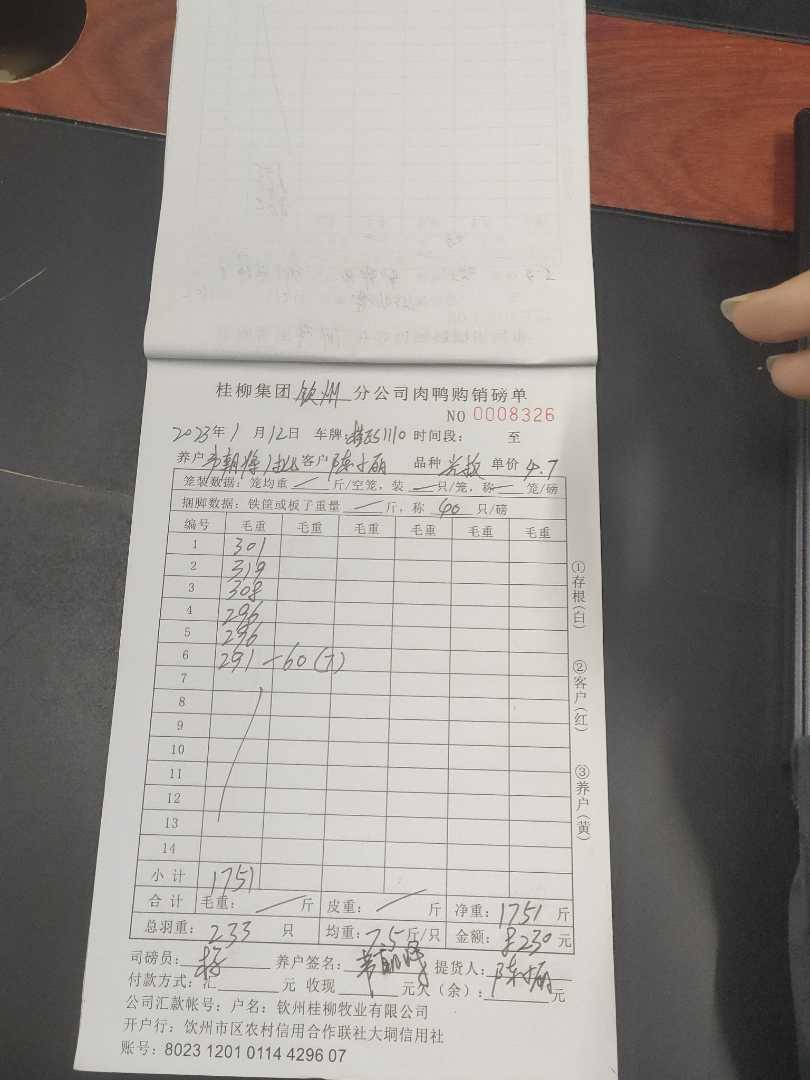 桂柳集团 钦州 分公司肉鸭购销磅单
NO 0008326
2023年1月12日 车牌: 时间段: 至
养户 客户 陈小丽 品种 单价 4.7
笼装数据: 笼均重 / 斤/空笼, 装 / 只/笼, 称 / 笼/磅
捆脚数据: 铁筐或板子重量 / 斤, 称 40 只/磅
编号 毛重 毛重 毛重 毛重 毛重 毛重
1 301
2 319
3 308
4 296
5 296
6 291 -60(7)
7
8
9
10
11
12
13
14
小计 1751
合计 毛重: / 斤 皮重: / 斤 净重: 1751 斤
总羽重: 233 只 均重: 7.5 斤/只 金额: 8230 元
司磅员: 养户签名: 提货人: 陈小丽
付款方式: 汇 元 收现 元欠(余): 元
公司汇款帐号: 户名: 钦州桂柳牧业有限公司
开户行: 钦州市区农村信用合作联社大垌信用社
账号: 8023 1201 0114 4296 07
①存根(白)
②客户(红)
③养户(黄)